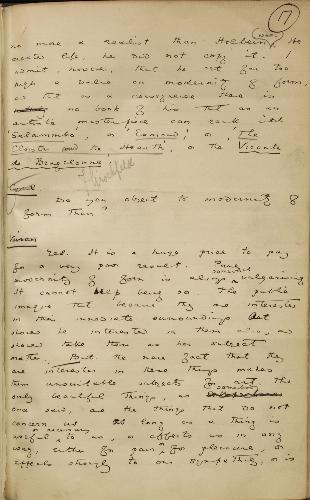 17
no more a realist than Holbein was. He
created life, he did not copy it. I
admit, however, that he set far too
high a value on modernity of form,
as that as a consequence there is
no book of his that as an
artistic masterpiece can rank with
'Salammbo', or 'Esmond', or 'The
Cloister and the Hearth', or the 'Vicomte
de Bragelonne'.
Cyril
Do you object to modernity of
form then?
Vivian
Yes. It is a huge price to pay
for a very poor result. Pure
modernity of form is always somewhat vulgarising
It cannot help being so. The public
imagine that because they are interested
in their immediate surroundings Art
should be interested in them also, and
should take them as her subject
matter. But the mere fact that they
are interested in these things makes
them unsuitable subjects for art. The
only beautiful things, as somebody
once said, are the things that do not
concern us. As long as a thing is
useful or necessary to us, or affects us in any
way, either for pain or for pleasure, or
appeals strongly to our sympathy, or is